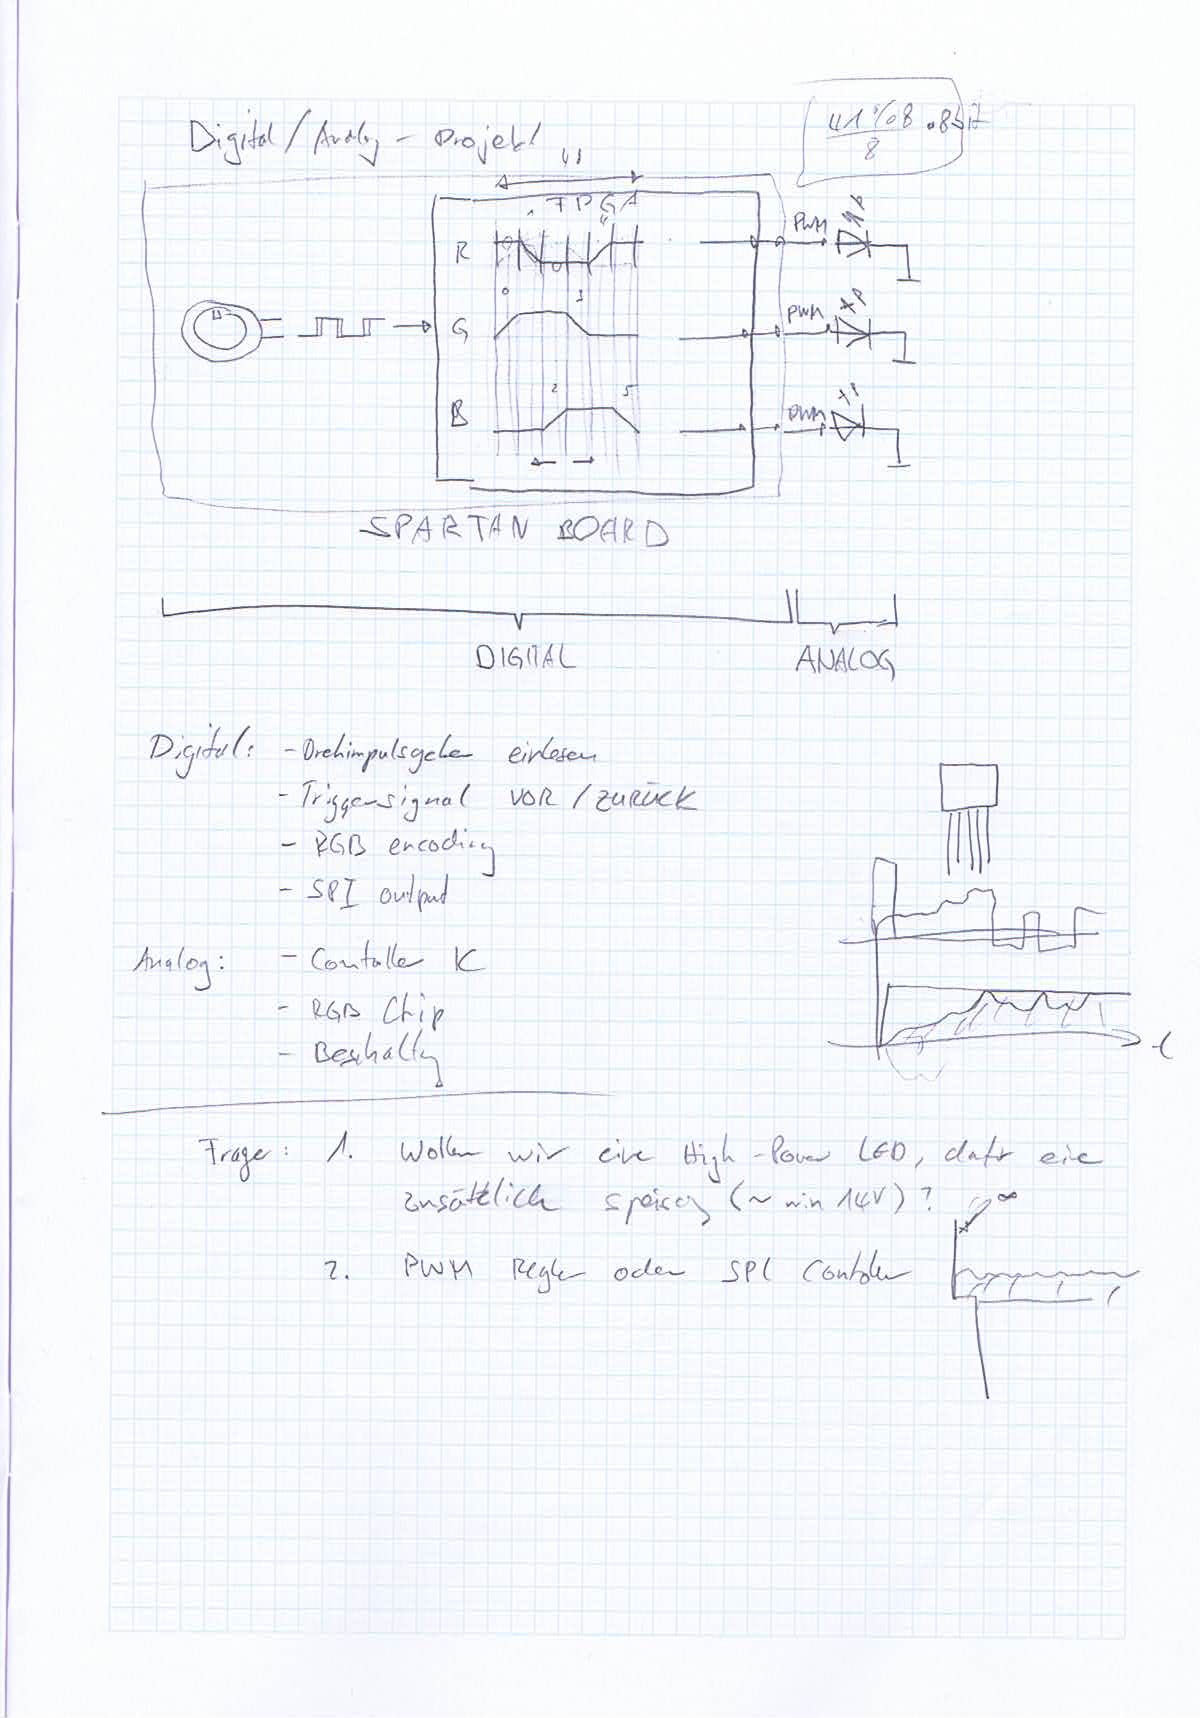 Digital/Analog - Projekt
8
FPGA
R
G
B
0
1
2
3
4
5
PWM
PWM
PWM
SPARTAN BOARD
DIGITAL
ANALOG
Digital: - Drehimpulsgeber einlesen
- Triggersignal VOR / ZURÜCK
- RGB encoding
- SPI output
Analog: - Controller IC
- RGB Chip
- Beschaltung
t
Frage: 1. Wollen wir eine High-Power LED, dafür eine
zusätzliche speisung (~ min 14V)?
∞
2. PWM Regler oder SPI Controler